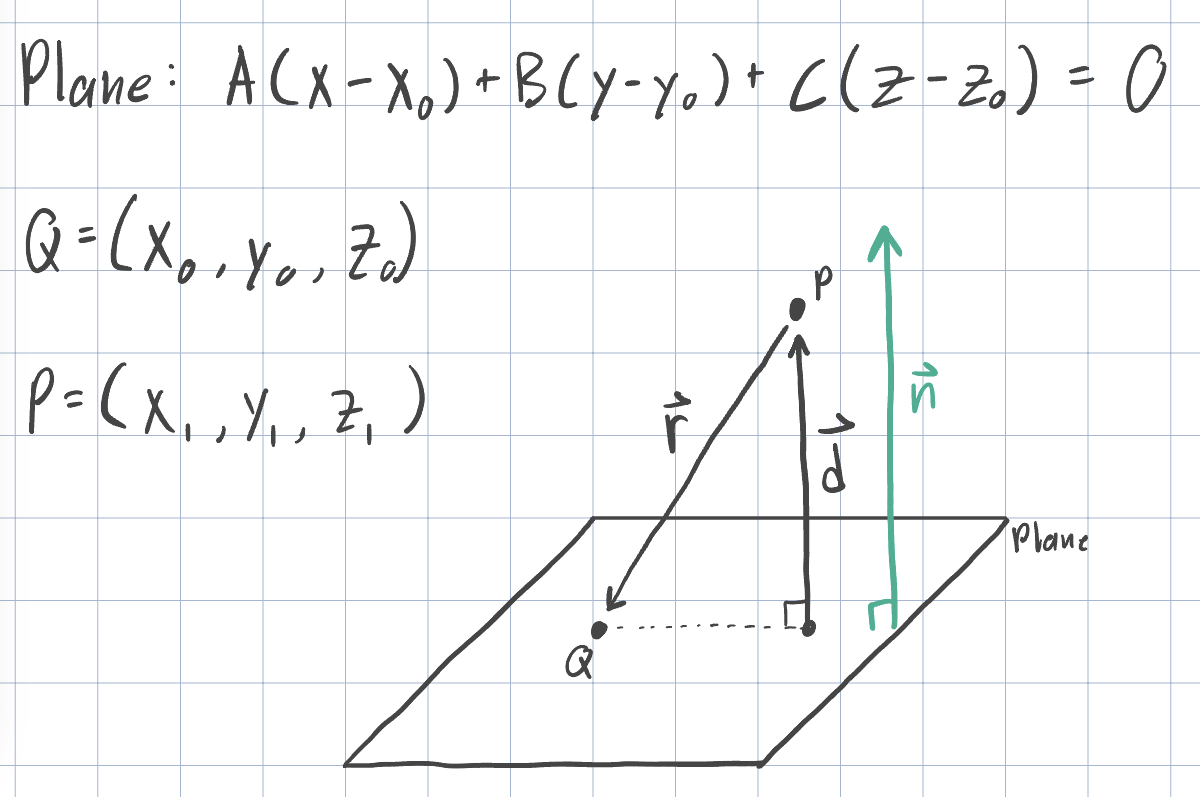 Plane: A(x-x₀)+B(y-y₀)+C(z-z₀)=0
Q=(x₀,y₀,z₀)
P=(x₁,y₁,z₁)
P
n⃗
r⃗
d⃗
Plane
Q